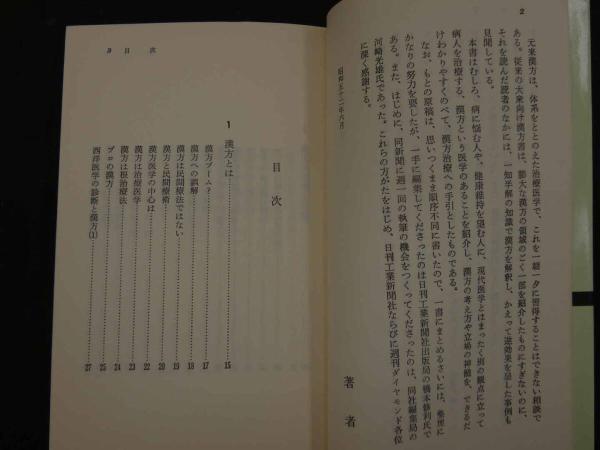 2
元来漢方は、体系をととのえた治療医学で、これを一朝一夕に習得することはできない相談で
ある。従来の大衆向け漢方書は、膨大な漢方の領域のごく一部を紹介したものにすぎないのに、
それを読んだ読者のなかには、一知半解の知識で漢方を解釈し、かえって逆効果を呈した事例も
見聞している。
本書はむしろ、病に悩む人や、健康維持を望む人に、現代医学とはまったく別の観点に立って
病人を治療する、漢方という医学のあることを紹介し、漢方の考え方や立場の神髄を、できるだ
けわかりやすくのべて、漢方治療への手引としたものである。
なお、もとの原稿は、思いつくまま順序不同に書いたので、一書にまとめるさいには、
かなりの努力を要したが、一手に編集してくださったのは日刊工業新聞社出版局の橋本修利氏で
ある。また、はじめに、同新聞に週一回の執筆の機会をつくってくださったのは、同社編集局の
河崎光雄氏であった。これらの方がたをはじめ、日刊工業新聞社ならびに週刊ダイヤモンド各位
に深く感謝する。
昭和五十二年六月
著者
3 目次
目次
1
漢方とは……15
漢方ブーム?……17
漢方への誤解……18
漢方は民間療法ではない……19
漢方と民間療術……20
漢方医学の中心は……22
漢方は治療医学……23
漢方は根治療法……24
プロの漢方……25
西洋医学の診断と漢方(1)……27